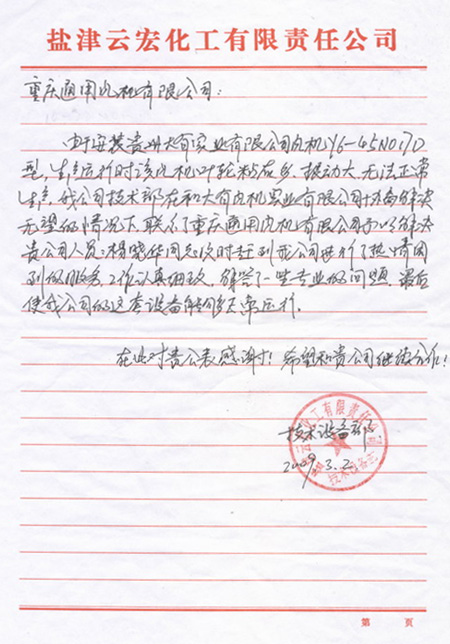 盐津云宏化工有限责任公司
重庆通用风机有限公司：
由于安装贵州大有实业有限公司风机Y6-45NO17D
型，生产运行时该风机叶轮粘灰多、振动大、无法正常
生产。我公司技术部在和大有风机实业有限公司协商解决
无望的情况下联系了重庆通用风机有限公司予以解决
贵公司人员：杨晓华同志及时赶到我公司进行了热情周
到的服务，工作认真细致，解答了一些专业的问题，最后
使我公司的这套设备能够正常运行。
在此对贵公表感谢！希望和贵公司继续合作！
技术设备部
2009.3.2
云宏化工有限责任公司
技术设备部
第 页